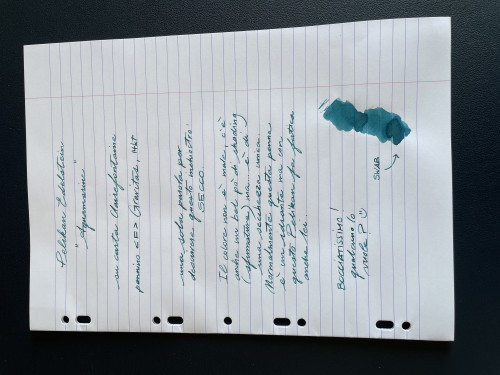 Pelikan Edelstein
"Aquamarine"
su carta Clairefontaine
pennino <F> Gravitas, 14kt
una sola parola per
descrivere questo inchiostro:
SECCO.
Il colore non è male, c'è
anche un bel pò di shading
(sfumatura) ma... è di
una secchezza unica.
Normalmente questa penna
è un idrante ma con
questo Pelikan fa fatica
anche lei.
BOCCIATISSIMO!
qualcuno lo
vuole?
SWAB